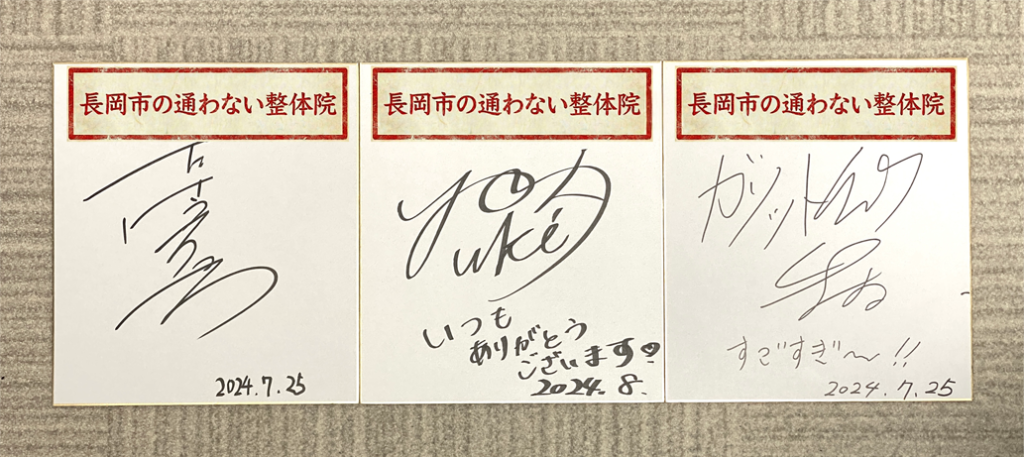 長岡市の通わない整体院
2024.7.25
長岡市の通わない整体院
Yuki
いつも
ありがとう
ございます
2024.8.
長岡市の通わない整体院
すごすぎ〜!!
2024.7.25